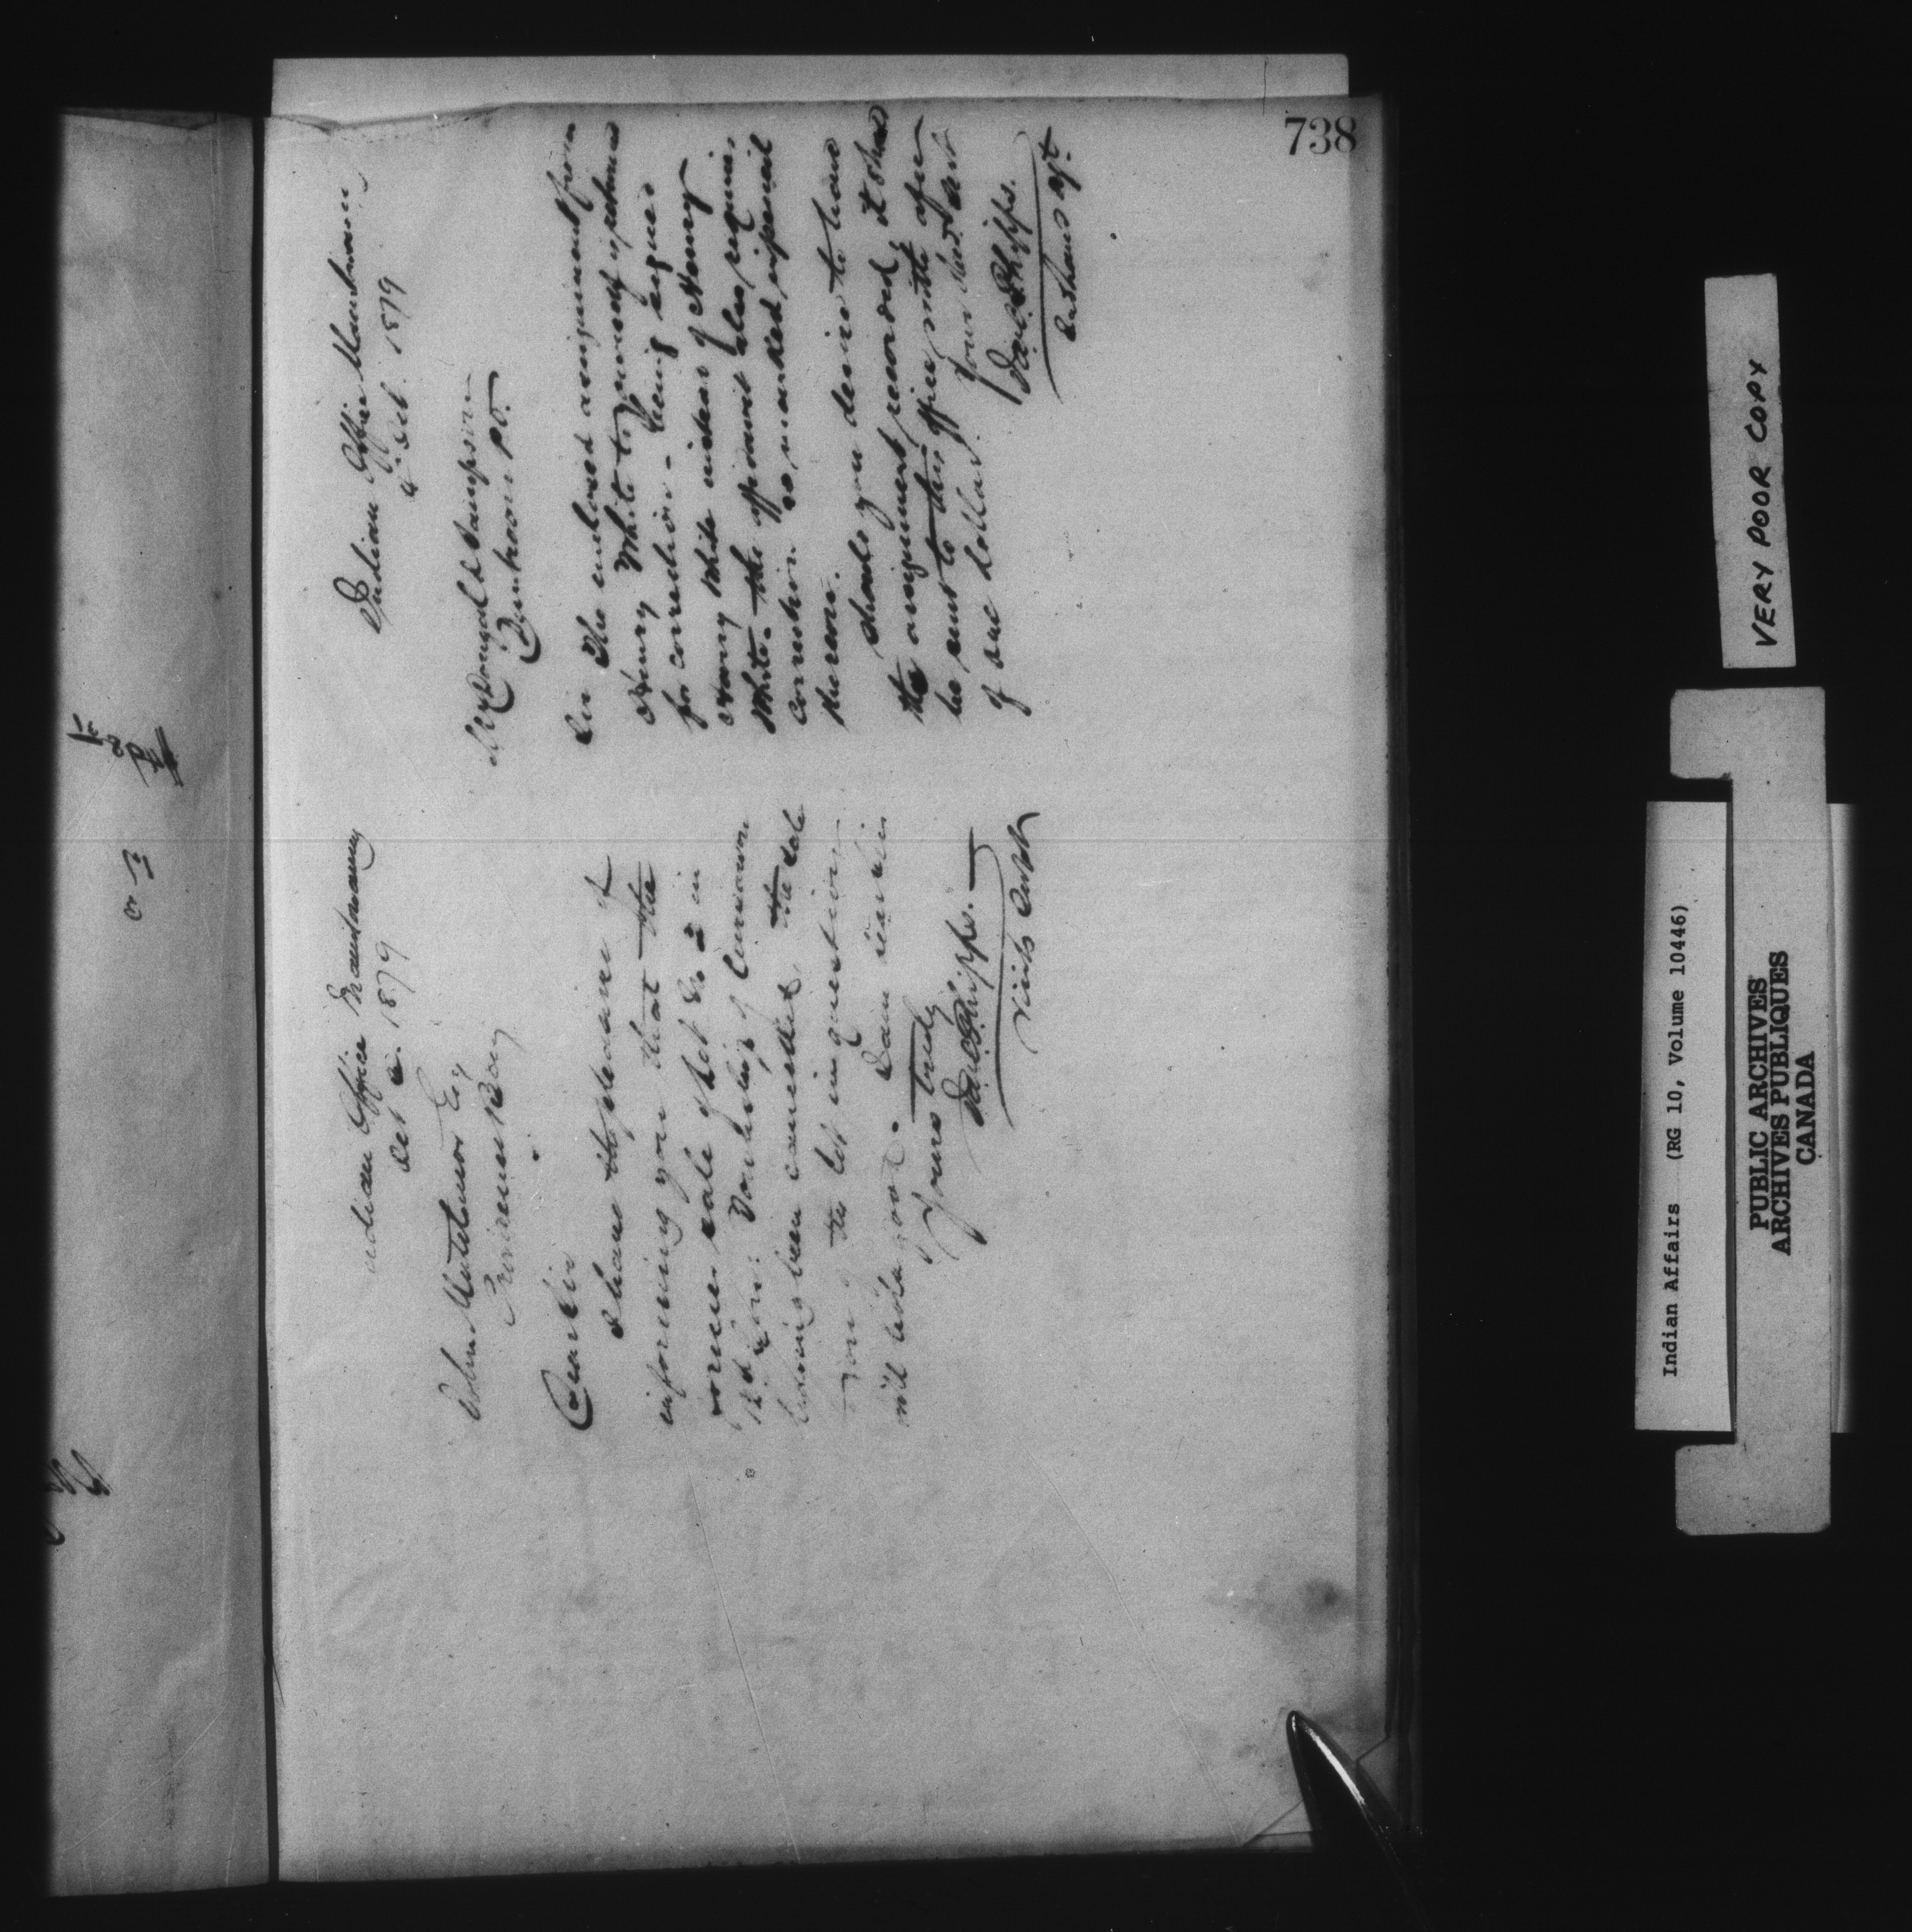 738
Indian Office Manitowaning
Oct 6. 1879
John
Esq
Providence Bay
Dear Sir
I have the pleasure of
informing you that the
former sale of Lot No 2 in
12th Con: Township of Carnarvon
having been cancelled the sale
to you of the lot in question
will hold good. I am dear sir
Yours truly
Jas. C. Phipps.
Visiting Supt
Indian Office Manitowaning
6 Oct. 1879
Alex
P.O.
Sir The enclosed assignment from
Henry White to is returned
for correction - being signed
Harvey White instead of Henry
White. The affidavit also requires
correction as marked in pencil
thereon.
Should you desire to have
the assignment recorded, it should
be sent to this office with a fee
of one dollar.
Your obed. Servt
Jas. C. Phipps.
VERY POOR COPY
Indian Affairs (RG 10, Volume 10446)
PUBLIC ARCHIVES
ARCHIVES PUBLIQUES
CANADA